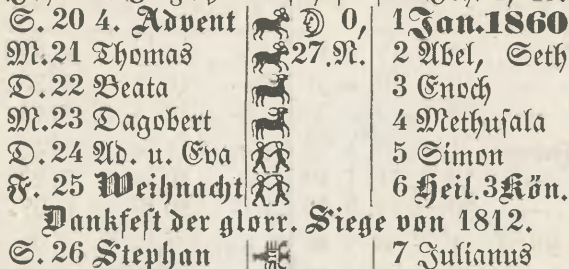 S. 20 4. Advent 0, 1 Jan. 1860
M. 21 Thomas 27. N. 2 Abel, Seth
D. 22 Beata 3 Enoch
M. 23 Dagobert 4 Methusala
D. 24 Ad. u. Eva 5 Simon
F. 25 Weihnacht 6 Heil. 3 Kön.
Dankfest der glorr. Siege von 1812.
S. 26 Stephan 7 Julianus